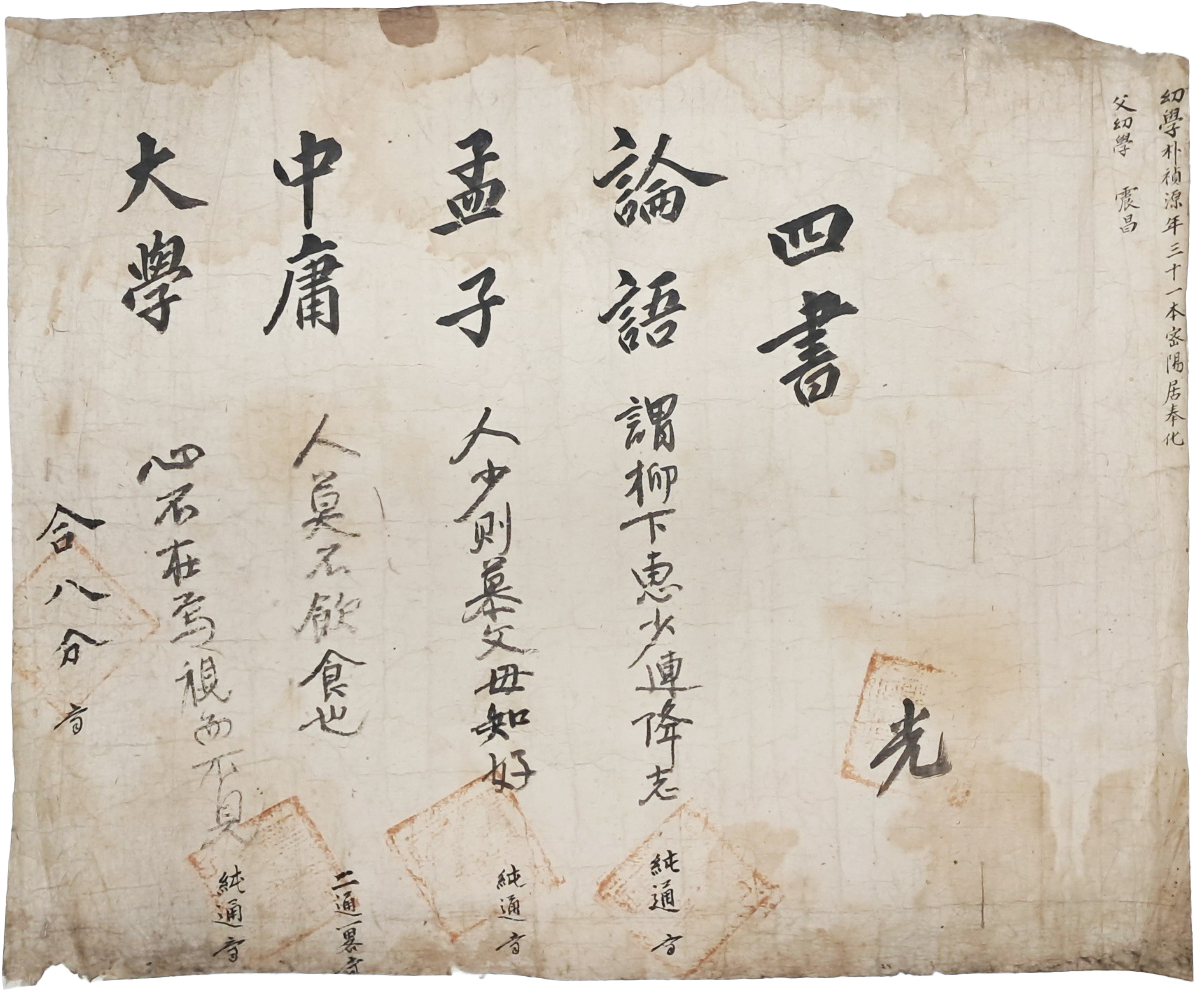 幼學朴禎源年三十一本密陽居奉化
父幼學 震昌
四書
光
論語 謂柳下惠少連降志
純通
孟子 人少則慕父母知好
純通
中庸 人莫不飮食也
二通一畧
大學 心不在焉視而不見
純通
合八分